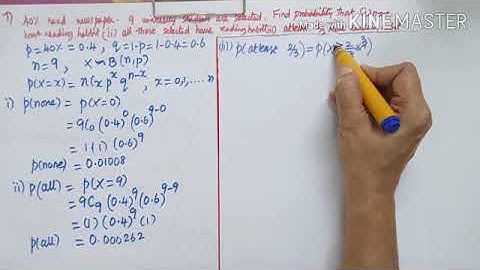 7) 40% read newspaper. 9 university students are selected. Find probability that (i) none
have reading habit (ii) all those selected have reading habit (iii) atleast 2/3
MADE WITH
KINEMASTER
p = 40% = 0.4, q = 1-p = 1-0.4 = 0.6
n = 9, X ~ B(n, p)
p(X=x) = nCx p^x q^n-x, x = 0,1,....n
i) p(none) = p(X=0)
= 9C0 (0.4)^0 (0.6)^9-0
= 1(1)(0.6)^9
p(none) = 0.01008
ii) p(all) = p(X=9)
= 9C9 (0.4)^9 (0.6)^9-9
= (1)(0.4)^9(1)
p(all) = 0.000262
(iii) p(atleast 2/3) = p(X